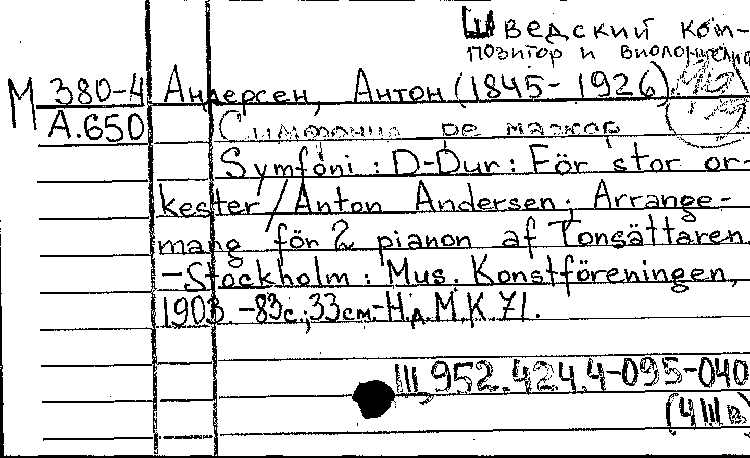 Шведский ком-
позитор и виолончелис
М 380-4 Андерсен, Антон (1845-1926)
А.650 Симфония ре мажор
Symfoni : D-Dur : För stor or-
kester / Anton Andersen; Arrange-
mang för 2 pianon af Tonsättaren.
-Stockholm : Mus. Konstföreningen,
1903 -83с.; 33см.-Н.д. М.К. 71.
III 952.424.4-095-040
(4 III в)